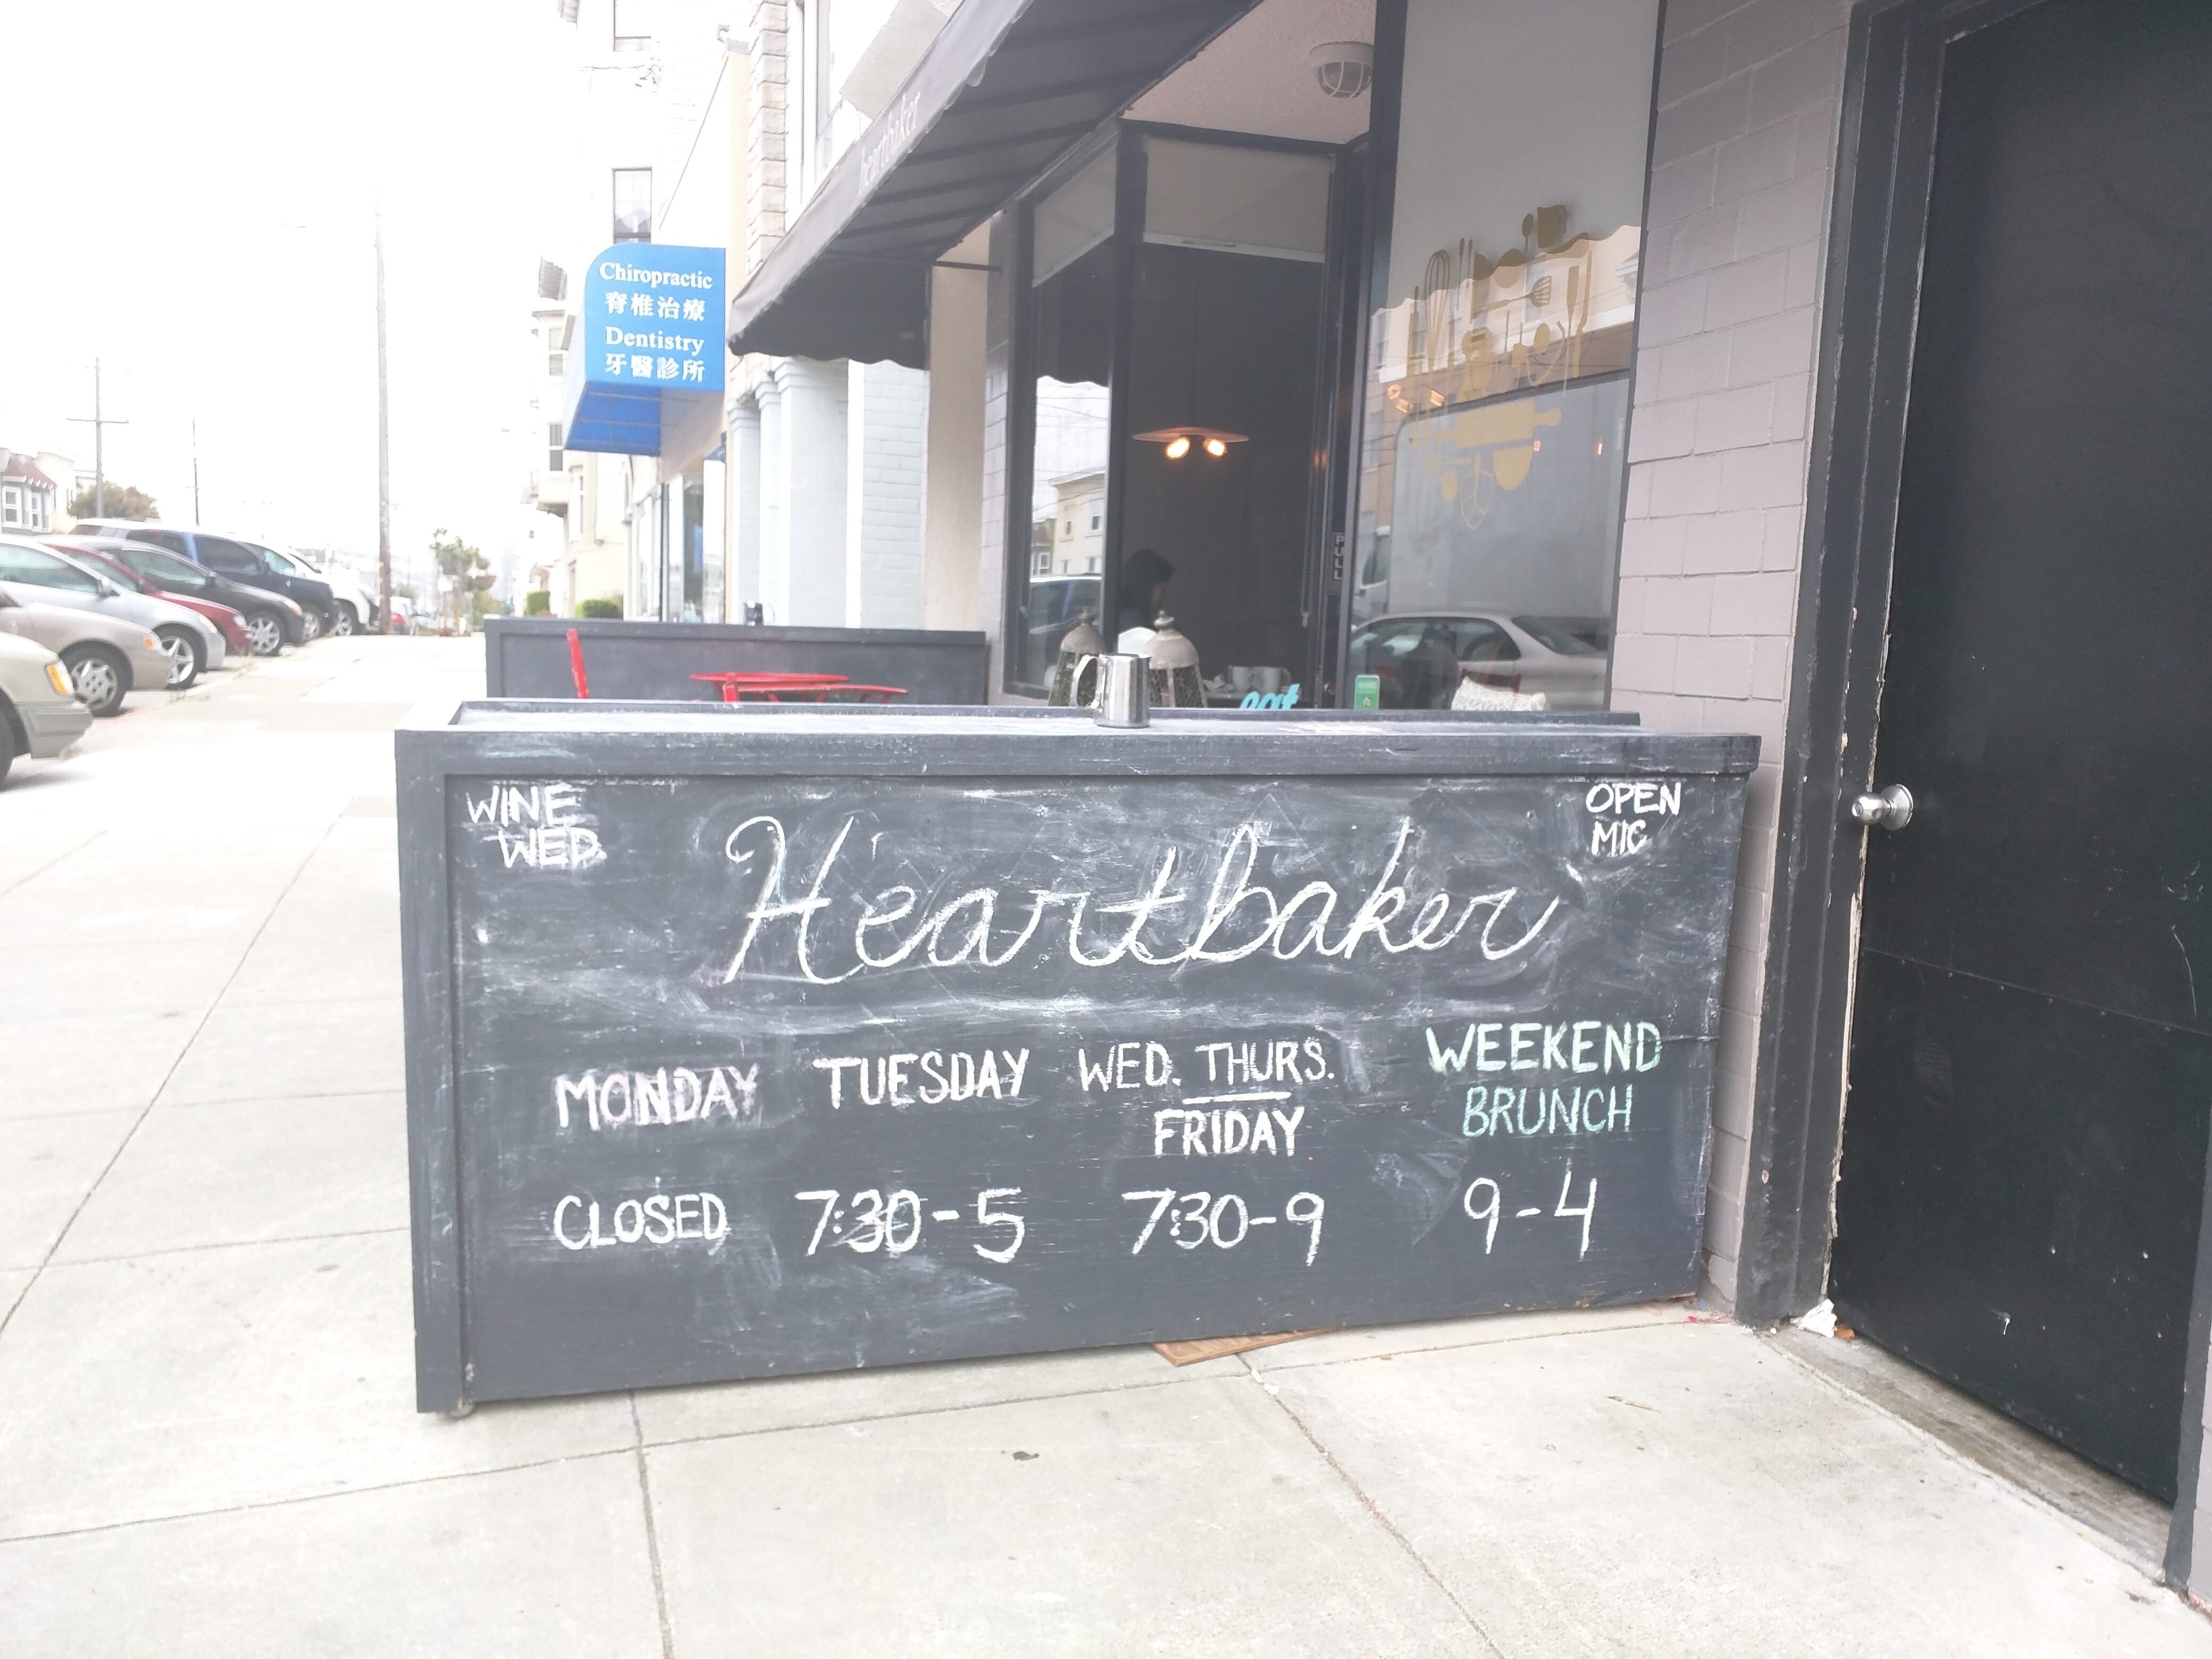 heartbaker
Chiropractic
脊椎治療
Dentistry
牙醫診所
PULL
eat
WINE
WED.
OPEN
MIC
Heartbaker
MONDAY
TUESDAY
WED. THURS.
FRIDAY
WEEKEND
BRUNCH
CLOSED
7:30-5
7:30-9
9-4